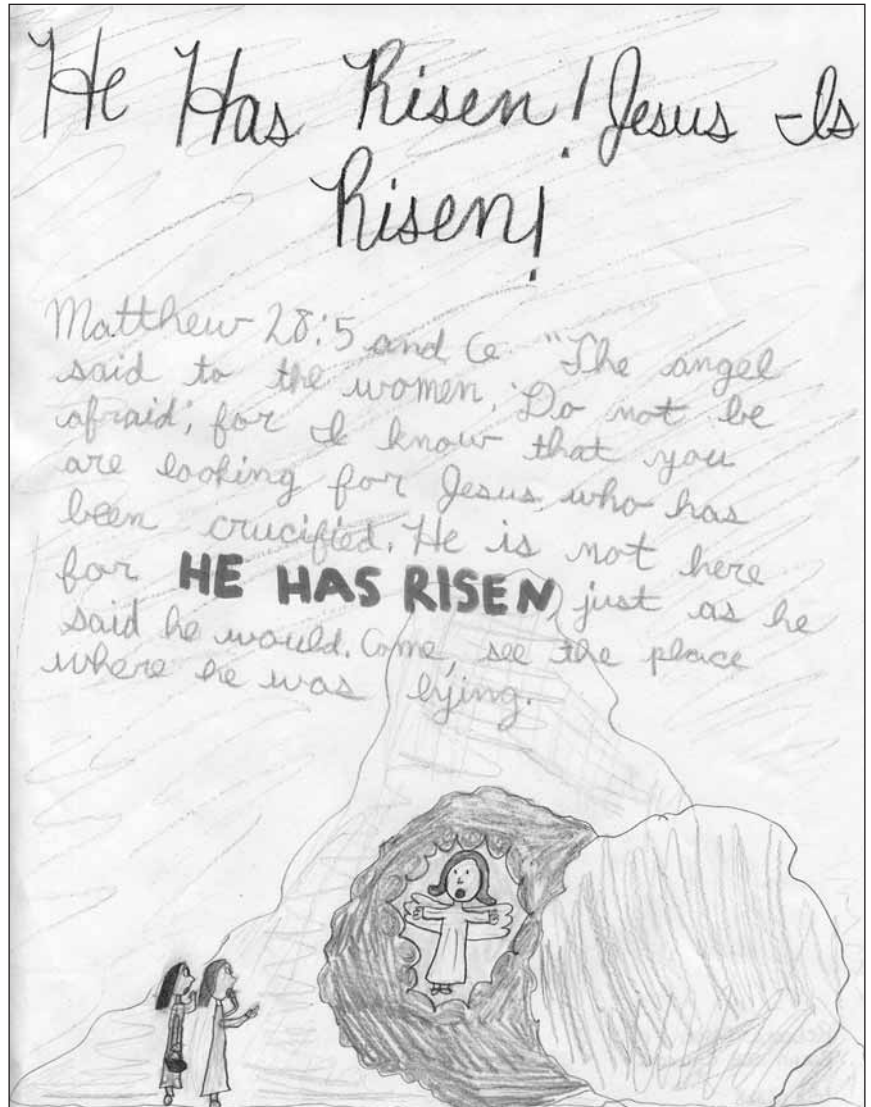 He Has Risen! Jesus Is
Risen!
Matthew 28:5 and 6 "The angel
said to the women, 'Do not be
afraid; for I know that you
are looking for Jesus who has
been crucified. He is not here
for HE HAS RISEN, just as he
said he would. Come, see the place
where he was lying.